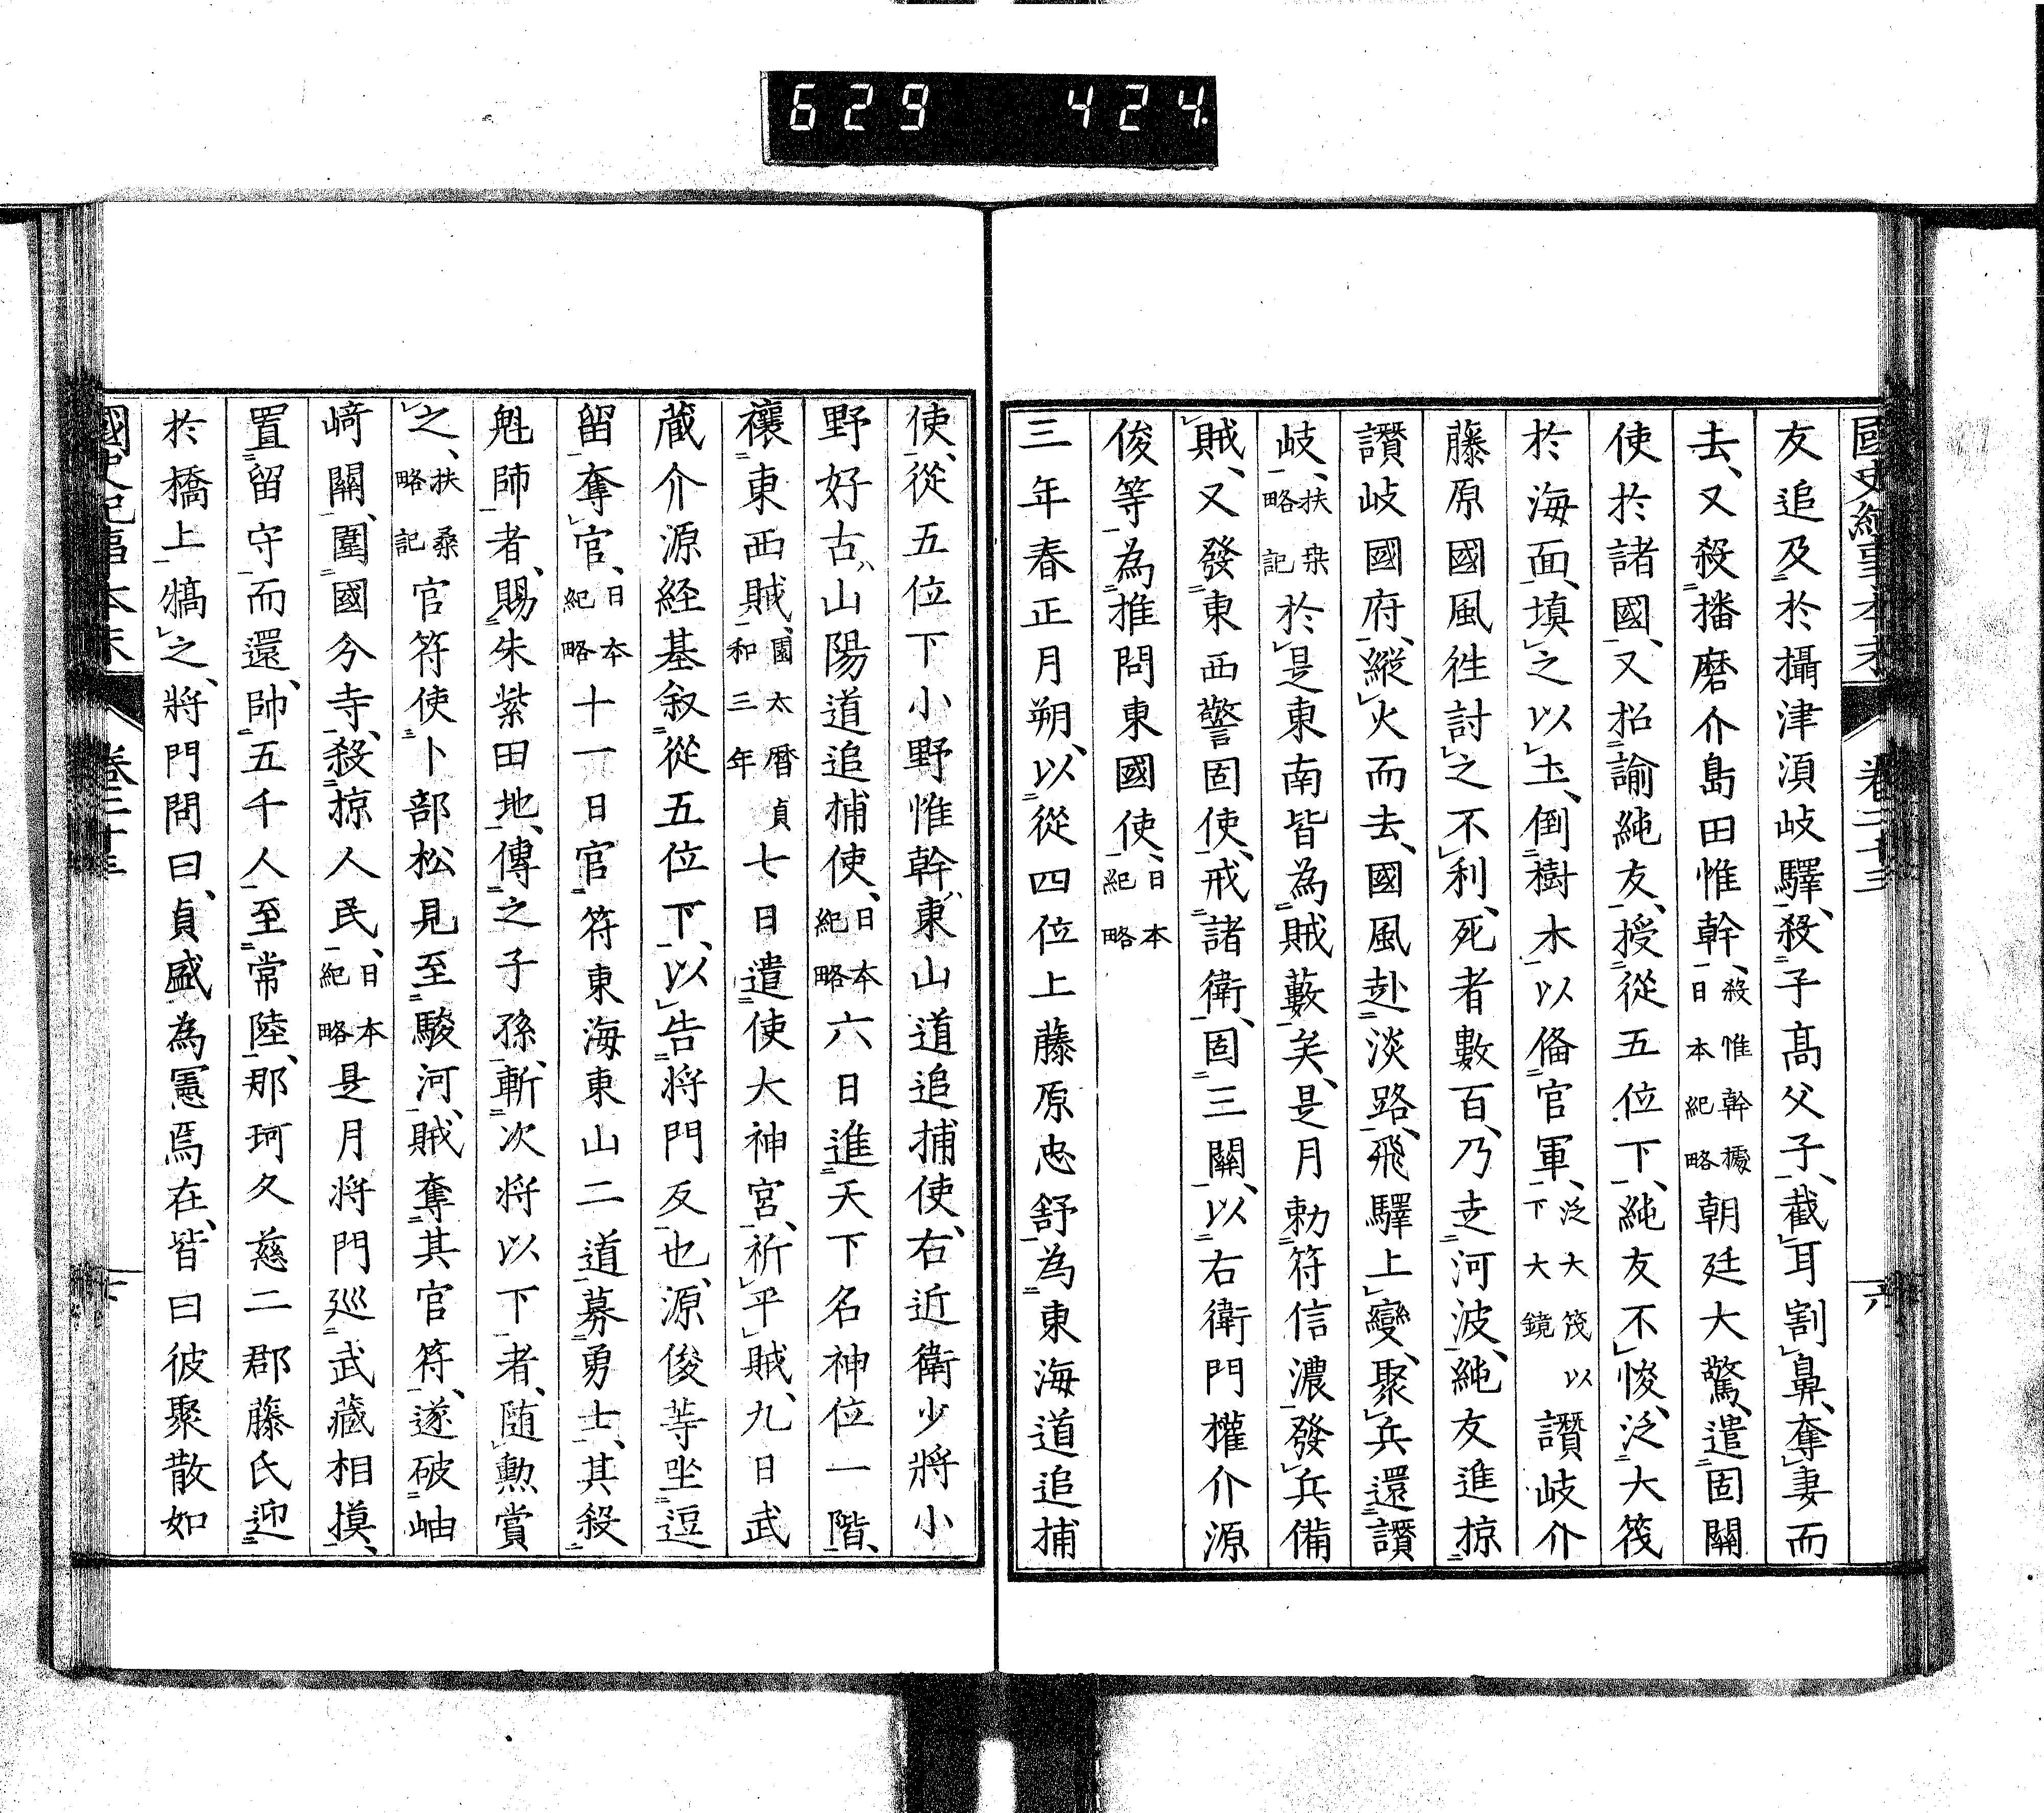 629 424
國史紀事本末 卷二十三 六
友追及於攝津湏岐驛、殺子髙父子、截耳割鼻、奪妻而
去、又殺播磨介島田惟幹、殺惟幹據日本紀略朝廷大驚、遣固關
使於諸國、又招諭純友、授從五位下、純友不悛、泛大筏
於海面、填之以土、倒樹木以俻官軍、泛大筏以下大鏡讚岐介
藤原國風徃討之不利、死者數百、乃走河波、純友進掠
讚岐國府、縱火而去、國風赴淡路、飛驛上變、聚兵還讚
岐、扶桒略記於是東南皆為賊藪矣、是月勅符信濃發兵備
賊、又發東西警固使、戒諸衛、固三關、以右衛門權介源
俊等為推問東國使、日本紀略
三年春正月朔、以從四位上藤原忠舒為東海道追捕
使、從五位下小野惟幹、東山道追捕使、右近衛少將小
野好古、山陽道追捕使、日本紀略六日進天下名神位一階、
禳東西賊、園太暦貞和三年七日遣使大神宮、祈平賊、九日武
蔵介源経基叙從五位下、以告将門反也、源俊等坐逗
留奪官、日本紀略十一日官符東海東山二道募勇士、其殺
魁帥者、賜朱紫田地、傳之子孫、斬次将以下者、随勲賞
之、扶桑略記官符使卜部松見至駿河、賊奪其官符、遂破岫
﨑關、圍國分寺、殺掠人民、日本紀略是月将門巡武藏相摸、
置留守而還、帥五千人至常陸、那珂久慈二郡藤氏迎
於橋上犒之、將門問曰、貞盛為憲焉在、皆曰彼聚散如
國史紀事本末 卷二十三 七